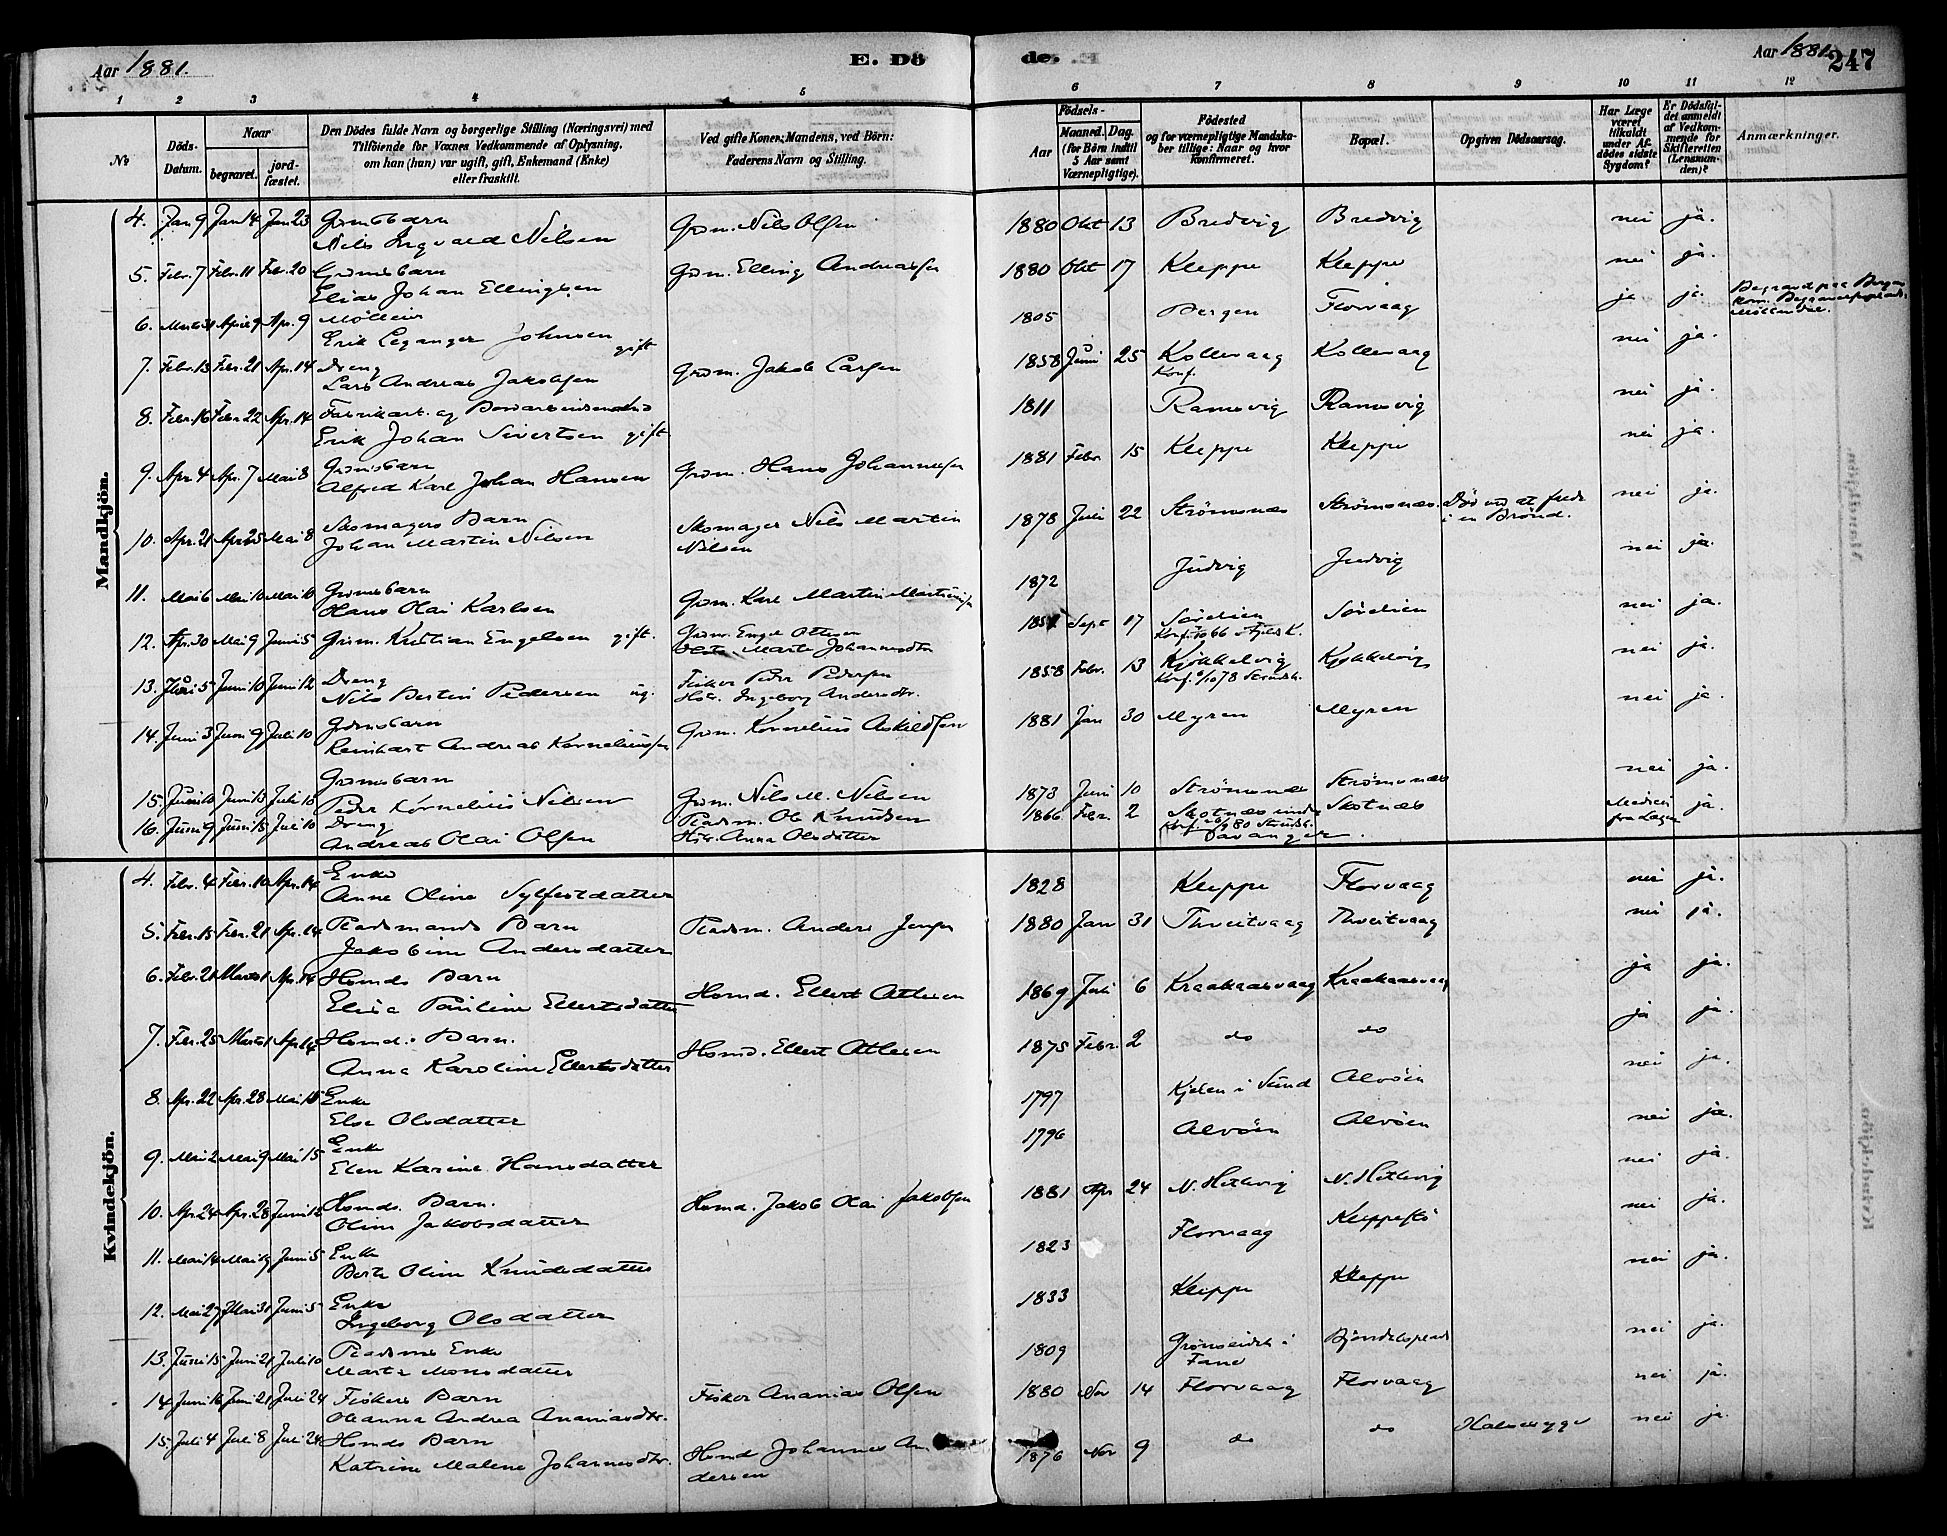 Aar 1881.
E. Dö
de.
Aar 1881.
247
1 2 3 4 5 6 7 8 9 10 11 12
№
Döds-Datum.
Naar
begravet.
jordfæstet.
Den Dödes fulde Navn og borgerlige Stilling (Næringsvei) med
Tilföiende for Voxnes Vedkommende af Oplysning,
om han (hun) var ugift, gift, Enkemand (Enke)
eller fraskilt.
Ved gifte Koner: Mandens, ved Börn:
Faderens Navn og Stilling.
Födsels-
Aar
Maaned. Dag.
(for Börn indtil
5 Aar samt
Værnepligtige).
Födested
og for værnepligtige Mandskaber tillige: Naar og hvor
konfirmeret.
Bopæl.
Opgiven Dödsaarsag.
Har Læge været tilkaldt under Afdödes sidste Sygdom?
Er Dödsfaldet anmeldt af Vedkommende for Skifteretten (Lensmanden)?
Anmærkninger.
Mandkjön.
4. Jan 9 Jan 14 Jan 23 Grmsbarn Nils Ingvald Nilsen Grm. Nils Olsen 1880 Okt 13 Bredvig Bredvig nei ja.
5. Febr. 7 Febr. 11 Febr. 20 Grmsbarn Elias Johan Ellingsen Grm. Elling Andreassen 1880 Okt 17 Kleppe Kleppe nei ja.
6. Marts 31 April 9 Apr. 9 Møller Erik Leganger Johnsen gift 1805 Bergen Florvaag ja ja. Begravet paa Bergens Kom. Begravelsesplads Møllendal.
7. Febr. 13 Febr. 21 Apr. 14 Dreng Lars Andreas Jakobsen Grm. Jakob Larsen 1858 Juni 25 Kollevaag Konf. Kollevaag nei ja.
8. Febr. 16 Febr. 22 Apr. 14 Erik Johan Sivertsen gift 1811 Ramsvig Ramsvig nei ja.
9. Apr. 4 Apr. 7 Mai 8 Grmsbarn Alfred Karl Johan Hansen Grm. Hans Johannessen 1881 Febr. 15 Kleppe Kleppe nei ja.
10. Apr. 21 Apr. 25 Mai 8 Skomagers Barn Johan Martin Nilsen Skomager Nils Martin Nilsen 1878 Juli 22 Strømsnes Strømsnes. Død ved at falde i en Brønd. nei ja.
11. Mai 6 Mai 10 Mai 10 Grmsbarn Hans Olai Karlsen Grm. Karl Martin 1872 Judvig Judvig nei ja.
12. Apr. 30 Mai 9 Juni 5 Grm. Kristian Engelsen gift. Grm. Engel Ottesen Marte Johannesdtr Sept 17 Sørelien Sørelien nei ja.
13. Juni 5 Juni 10 Juni 12 Dreng Nils Bertin Pedersen ug. Fisker Peder Pedersen Hst. Ingeborg Andersdtr. 1858 Febr. 13 Kjøkkelvig Kjøkkelvig nei ja.
14. Juni 3 Juni 9 Juli 10 Grmsbarn Reinhart Andreas Korneliussen Grm. Kornelius Askildsen 1881 Jan 30 Myren Myren nei ja.
15. Juni 10 Juni 15 Juli 10 Grmsbarn Peder Kornelius Nilsen Grm. Nils M. Nilsen 1873 Juni 10 Strømsnes Strømsnes nei ja.
16. Juni 9 Juni 15 Juli 10 Dreng Andreas Olai Olsen Pladsm. Ole Knudsen Hst. Anna Olsdatter 1866 Febr. 2 Skotnes under Davanger. Skotnes Medicin fra Lægen ja.
Kvindekjön.
4. Febr. 4 Febr. 10 Apr. 14 Enke Anne Oline Sylfestdatter 1828 Kleppe Florvaag nei ja.
5. Febr. 15 Febr. 21 Apr. 14 Pladsmands Barn Jakobine Andersdatter Pladsm. Anders Jensen 1880 Jan 31 Thveitvaag Thveitvaag nei ja.
6. Febr. 21 Marts 1 Apr. 14 Hsmds Barn Elisa Pauline Ellertsdatter Hsmd. Ellert Atlesen 1869 Juli 6 Kraakaasvaag Kraakaasvaag ja ja.
7. Febr. 25 Marts 1 Apr. 14 Hsmds Barn. Anna Karoline Ellertsdatter Hsmd. Ellert Atlesen 1875 Febr. 2 do do ja ja.
8. Apr. 22 Apr. 28 Mai 15 Enke Else Olsdatter 1797 Kjelen i Sund Alvøen nei ja.
9. Mai 2 Mai 9 Mai 15 Enke Elen Karine Hansdatter 1796 Alvøen Alvøen nei ja.
10. Apr. 24 Apr. 28 Juni 12 Hsmds. Barn. Oline Jakobsdatter Hsmd. Jakob Olai Jakobsen 1881 Apr 24 N. Hetlevig N. Hetlevig nei ja.
11. Mai 14 Mai 19 Juni 5 Enke Berte Oline Knudsdatter 1823 Florvaag Kleppestø nei ja.
12. Mai 27 Mai 31 Juni 5 Enke Ingeborg Olsdatter 1833 Kleppe Kleppe nei ja.
13. Juni 15 Juni 21 Juli 10 Pladsms Enke Marte Monsdatter 1809 Grønseidet i Fane nei ja.
14. Juni 16 Juni 21 Juli 24 Fiskers Barn Oleanna Andrea Ananiasdtr. Fisker Ananias Olsen 1880 Nov 14 Florvaag Florvaag nei ja.
15. Juli 4 Juli 8 Juli 24 Hsmds Barn Katrine Malene Johannesdtr. Hsmd Johannes Andersen 1876 Nov 9 do do Halssyge nei ja.